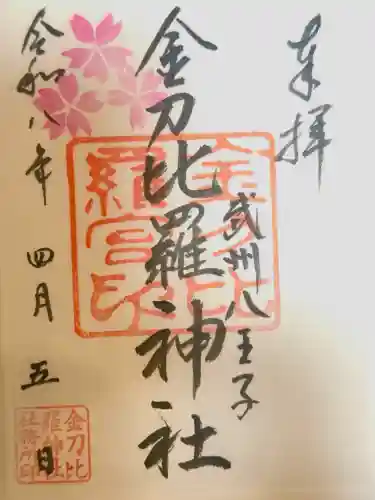 奉拝
武州八王子
金刀比羅神社
令和八年 四月 五日
金刀比羅宮印
金刀比羅神社社務所印